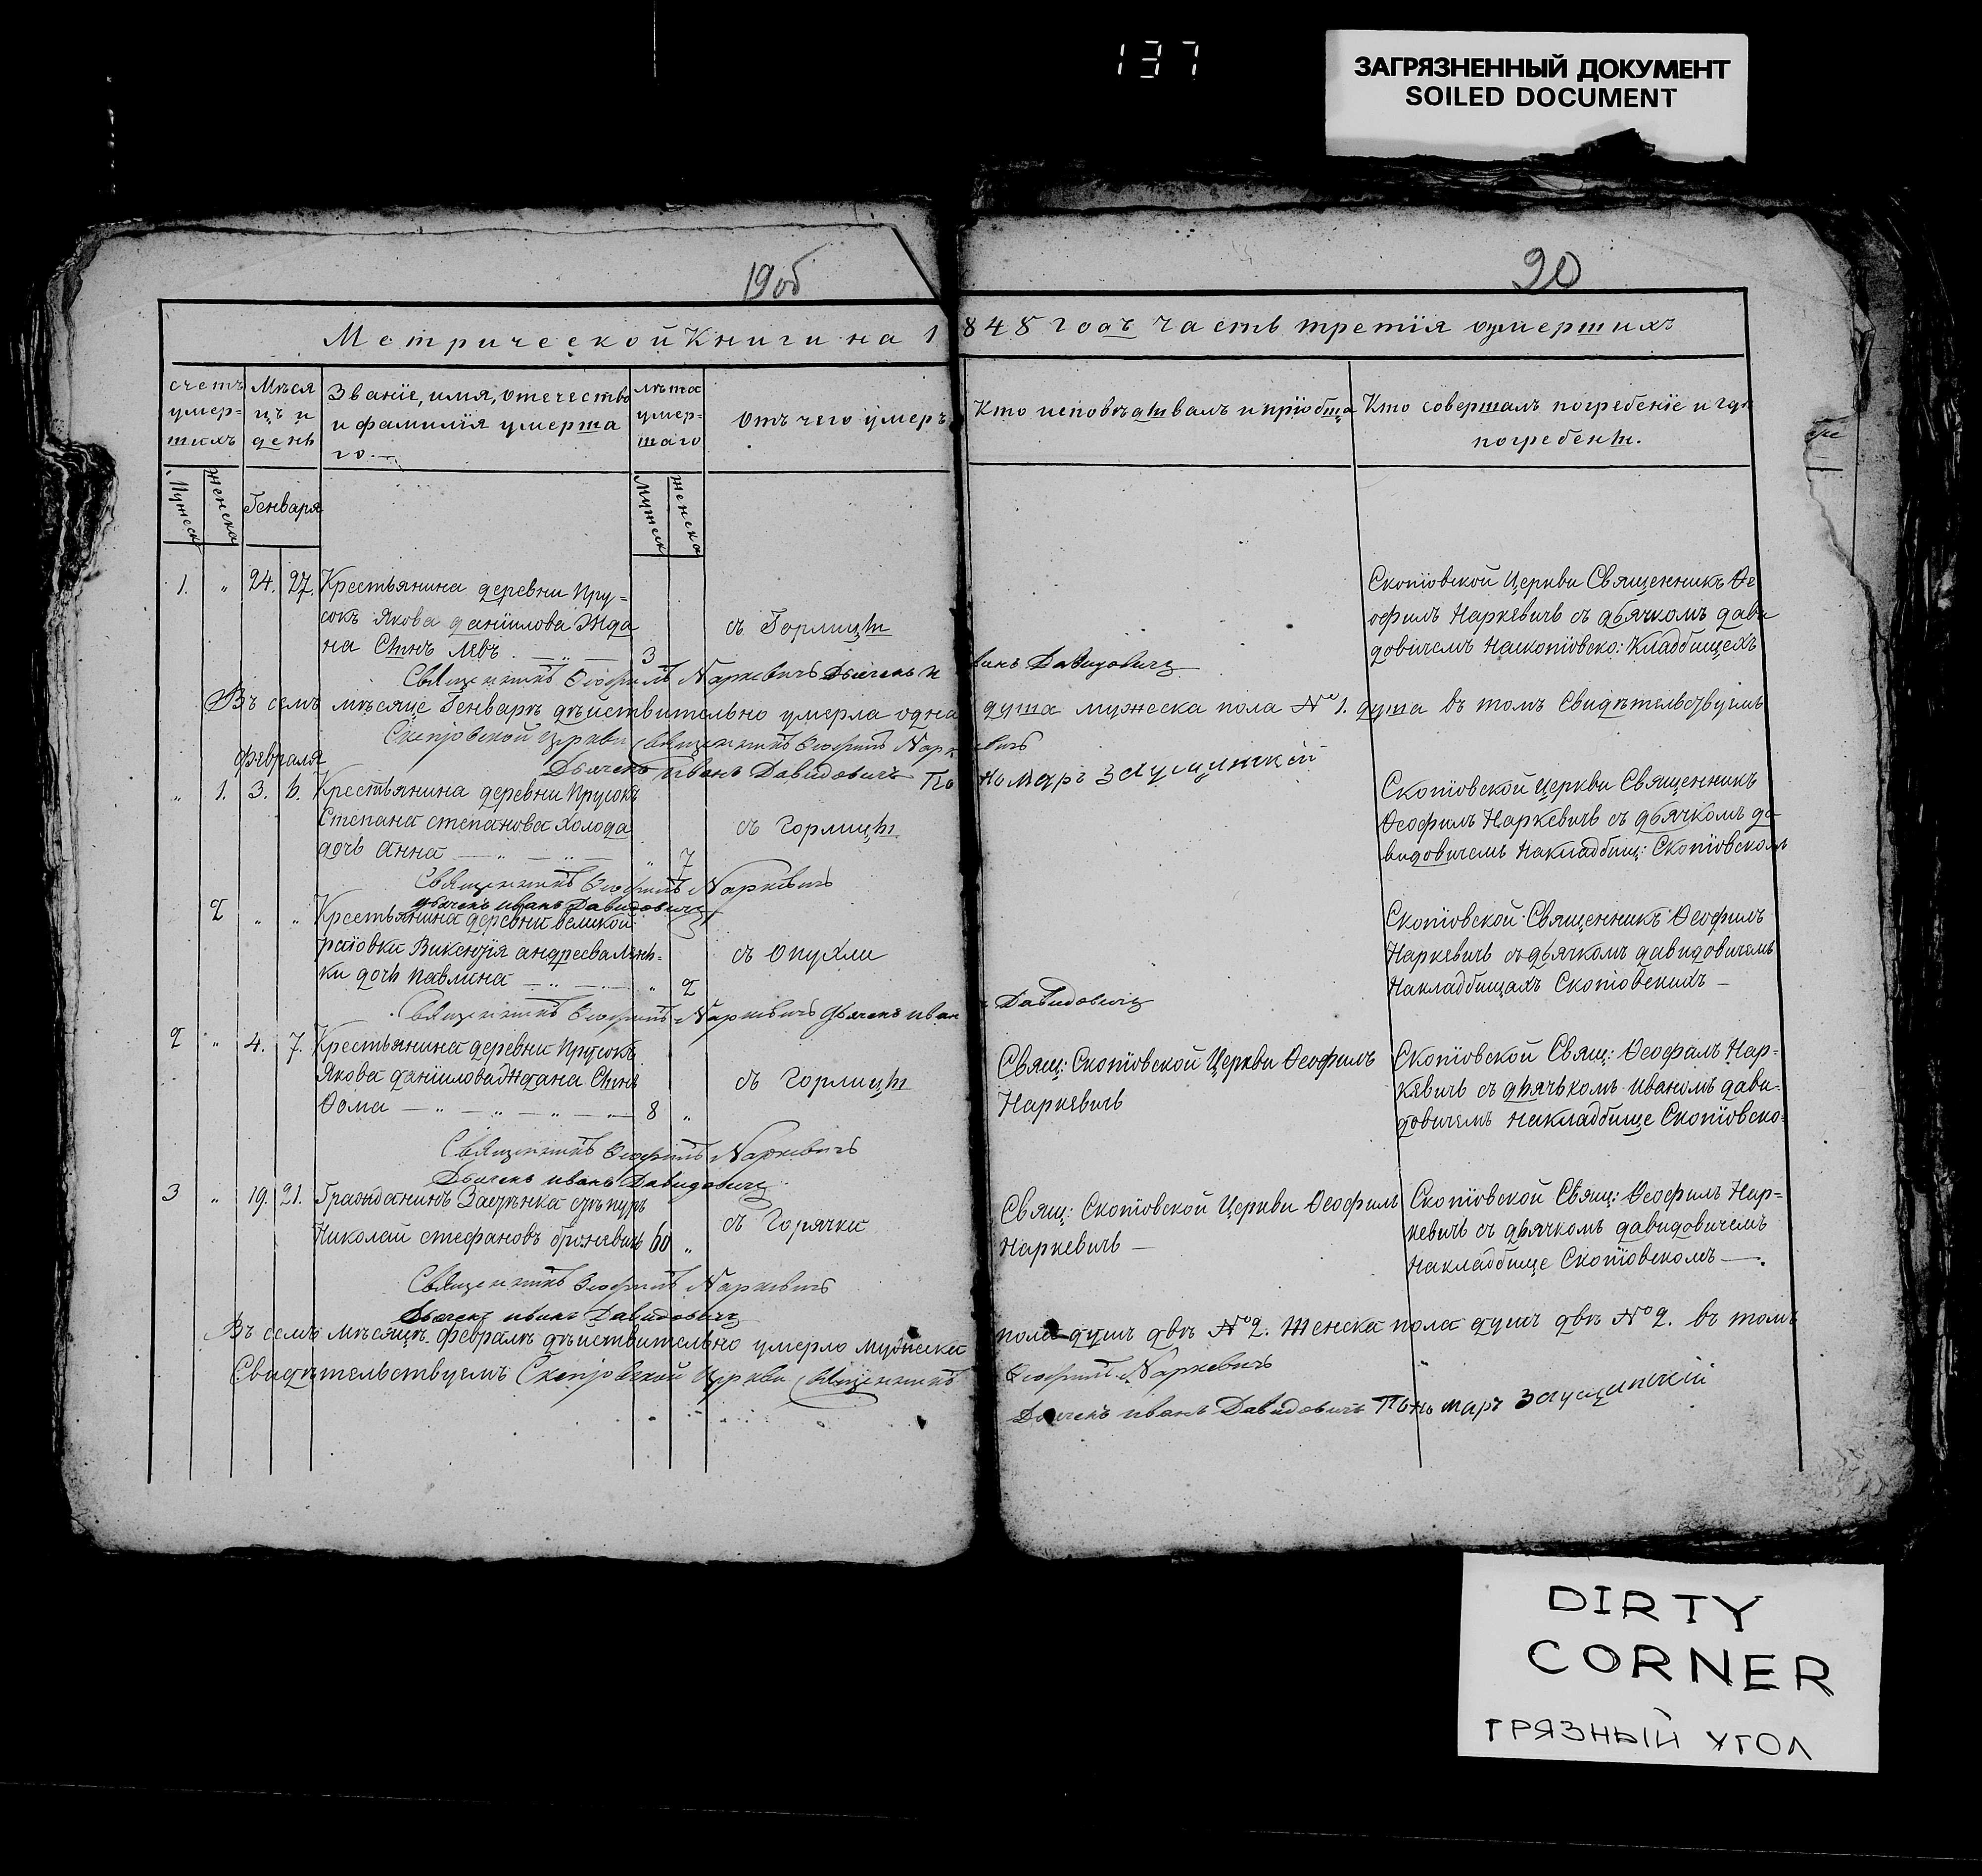 137
ЗАГРЯЗНЕННЫЙ ДОКУМЕНТ
SOILED DOCUMENT
19об
20
Метрической Книги на 1848 годъ часть третія умершихъ
счетъ умер-
шихъ
Мѣся
цъ и
день
Званіе, имя, отечество
и фамилія умерша
го.—
лѣта
умер-
шаго
отъ чего умеръ
Кто исповѣдывалъ и пріобща
Кто совершалъ погребеніе и гдѣ
погребены.
Мужеск
Женска
Генваря
Мужеск
Женска
1. „ 24. 27. Крестьянина деревни Пру-
сокъ Якова данилова Жда
на Сынъ Левъ 3
съ Горлицы
Скопіовской Церкви Священникъ Ѳе
офилъ Наркевичъ съ дьячкомъ дави
довичемъ Наскопіовско: Кладбищехъ
Священникъ Ѳеофилъ Наркевичъ Дьячекъ Иванъ Давидовичъ
Въ семъ мѣсяце Генварѣ дѣйствительно умерла одна душа мужеска пола № 1. душа въ томъ Свидѣтельствуемъ
Скопіовской Церкви Священникъ Ѳеофилъ Наркевичъ
Дьячекъ Иванъ Давидовичъ Пономаръ
февраля
„ 1. 3. 6. Крестьянина деревни Прусокъ
Степана степанова Холода
дочь Анна „ 7
съ Горлицы
Скопіовской Церкви Священникъ
Ѳеофилъ Наркевичъ съ дьячкомъ да
видовичемъ Накладбищ: Скопіовском
Священникъ Ѳеофилъ Наркевичъ
дьячекъ иванъ Давидовичъ
2 „ „ Крестьянина деревни великой
андреева
ки дочь павлина „ 2
съ Опухли
Скопіовской Священникъ Ѳеофилъ
Наркевичъ съ дьячкомъ давидовичемъ
Накладбищахъ Скопіовскихъ —
Священникъ Ѳеофилъ Наркевичъ дьячекъ иванъ Давидовичъ
2 „ 4. 7. Крестьянина деревни Прусокъ
Якова данилова Ждана Сынъ
Ѳома 8 „
съ Горлицы
Свящ: Скопіовской Церкви Ѳеофилъ
Наркевичъ
Скопіовской Свящ: Ѳеофилъ Нар-
кевичъ съ дьячькомъ иваномъ дави-
довичемъ Накладбище Скопіовско
Священникъ Ѳеофилъ Наркевичъ
Дьячекъ иванъ Давидовичъ
3 „ 19. 21. Гражданинъ
Николай стефановъ 60 „
съ Горячки
Свящ: Скопіовской Церкви Ѳеофилъ
Наркевичъ —
Скопіовской Свящ: Ѳеофилъ Нар-
кевичъ съ дьячкомъ давидовичемъ
Накладбище Скопіовскомъ —
Священникъ Ѳеофилъ Наркевичъ
Дьячекъ иванъ Давидовичъ
Въ семъ мѣсяцѣ февралѣ дѣйствительно умерло мужеска пола душъ двѣ № 2. Женска пола душъ двѣ № 2. въ томъ
Свидѣтельствуемъ Скопіовской Церкви Священникъ Ѳеофилъ Наркевичъ
Дьячекъ иванъ Давидовичъ Пономаръ
DIRTY
CORNER
ГРЯЗНЫЙ УГОЛ